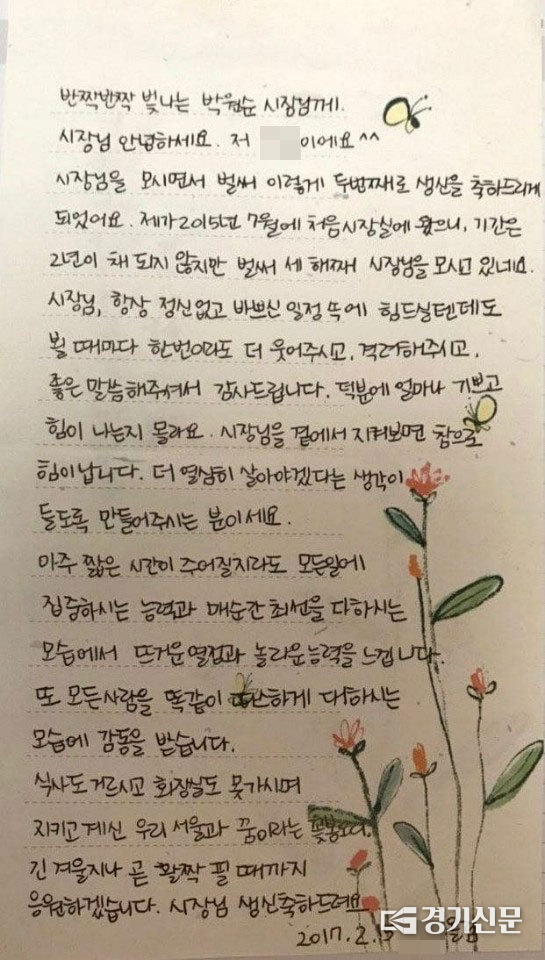 반짝반짝 빛나는 박원순 시장님께.
시장님 안녕하세요. 저 이에요^^
시장님을 모시면서 벌써 이렇게 두번째로 생신을 축하드리게
되었어요. 제가 2015년 7월에 처음시장실에 왔으니, 기간은
2년이 채 되지 않지만 벌써 세 해째 시장님을 모시고 있네요.
시장님, 항상 정신없고 바쁘신 일정 속에 힘드실텐데도
볼 때마다 한번이라도 더 웃어주시고, 격려해주시고,
좋은 말씀해주셔서 감사드립니다. 덕분에 얼마나 기쁘고
힘이 나는지 몰라요. 시장님을 곁에서 지켜보면 참으로
힘이납니다. 더 열심히 살아야겠다는 생각이
들도록 만들어주시는 분이세요.
아주 짧은 시간이 주어질지라도 모든일에
집중하시는 능력과 매순간 최선을 다하시는
모습에서 뜨거운 열정과 놀라운 능력을 느낍니다.
또 모든사람을 똑같이 따스하게 대하시는
모습에 감동을 받습니다.
식사도 거르시고 화장실도 못가시며
지키고 계신 우리 서울과 꿈이라는 꽃봉오리
긴 겨울지나 곧 활짝 필 때까지
응원하겠습니다. 시장님 생신축하드려요
2017. 2.
경기신문